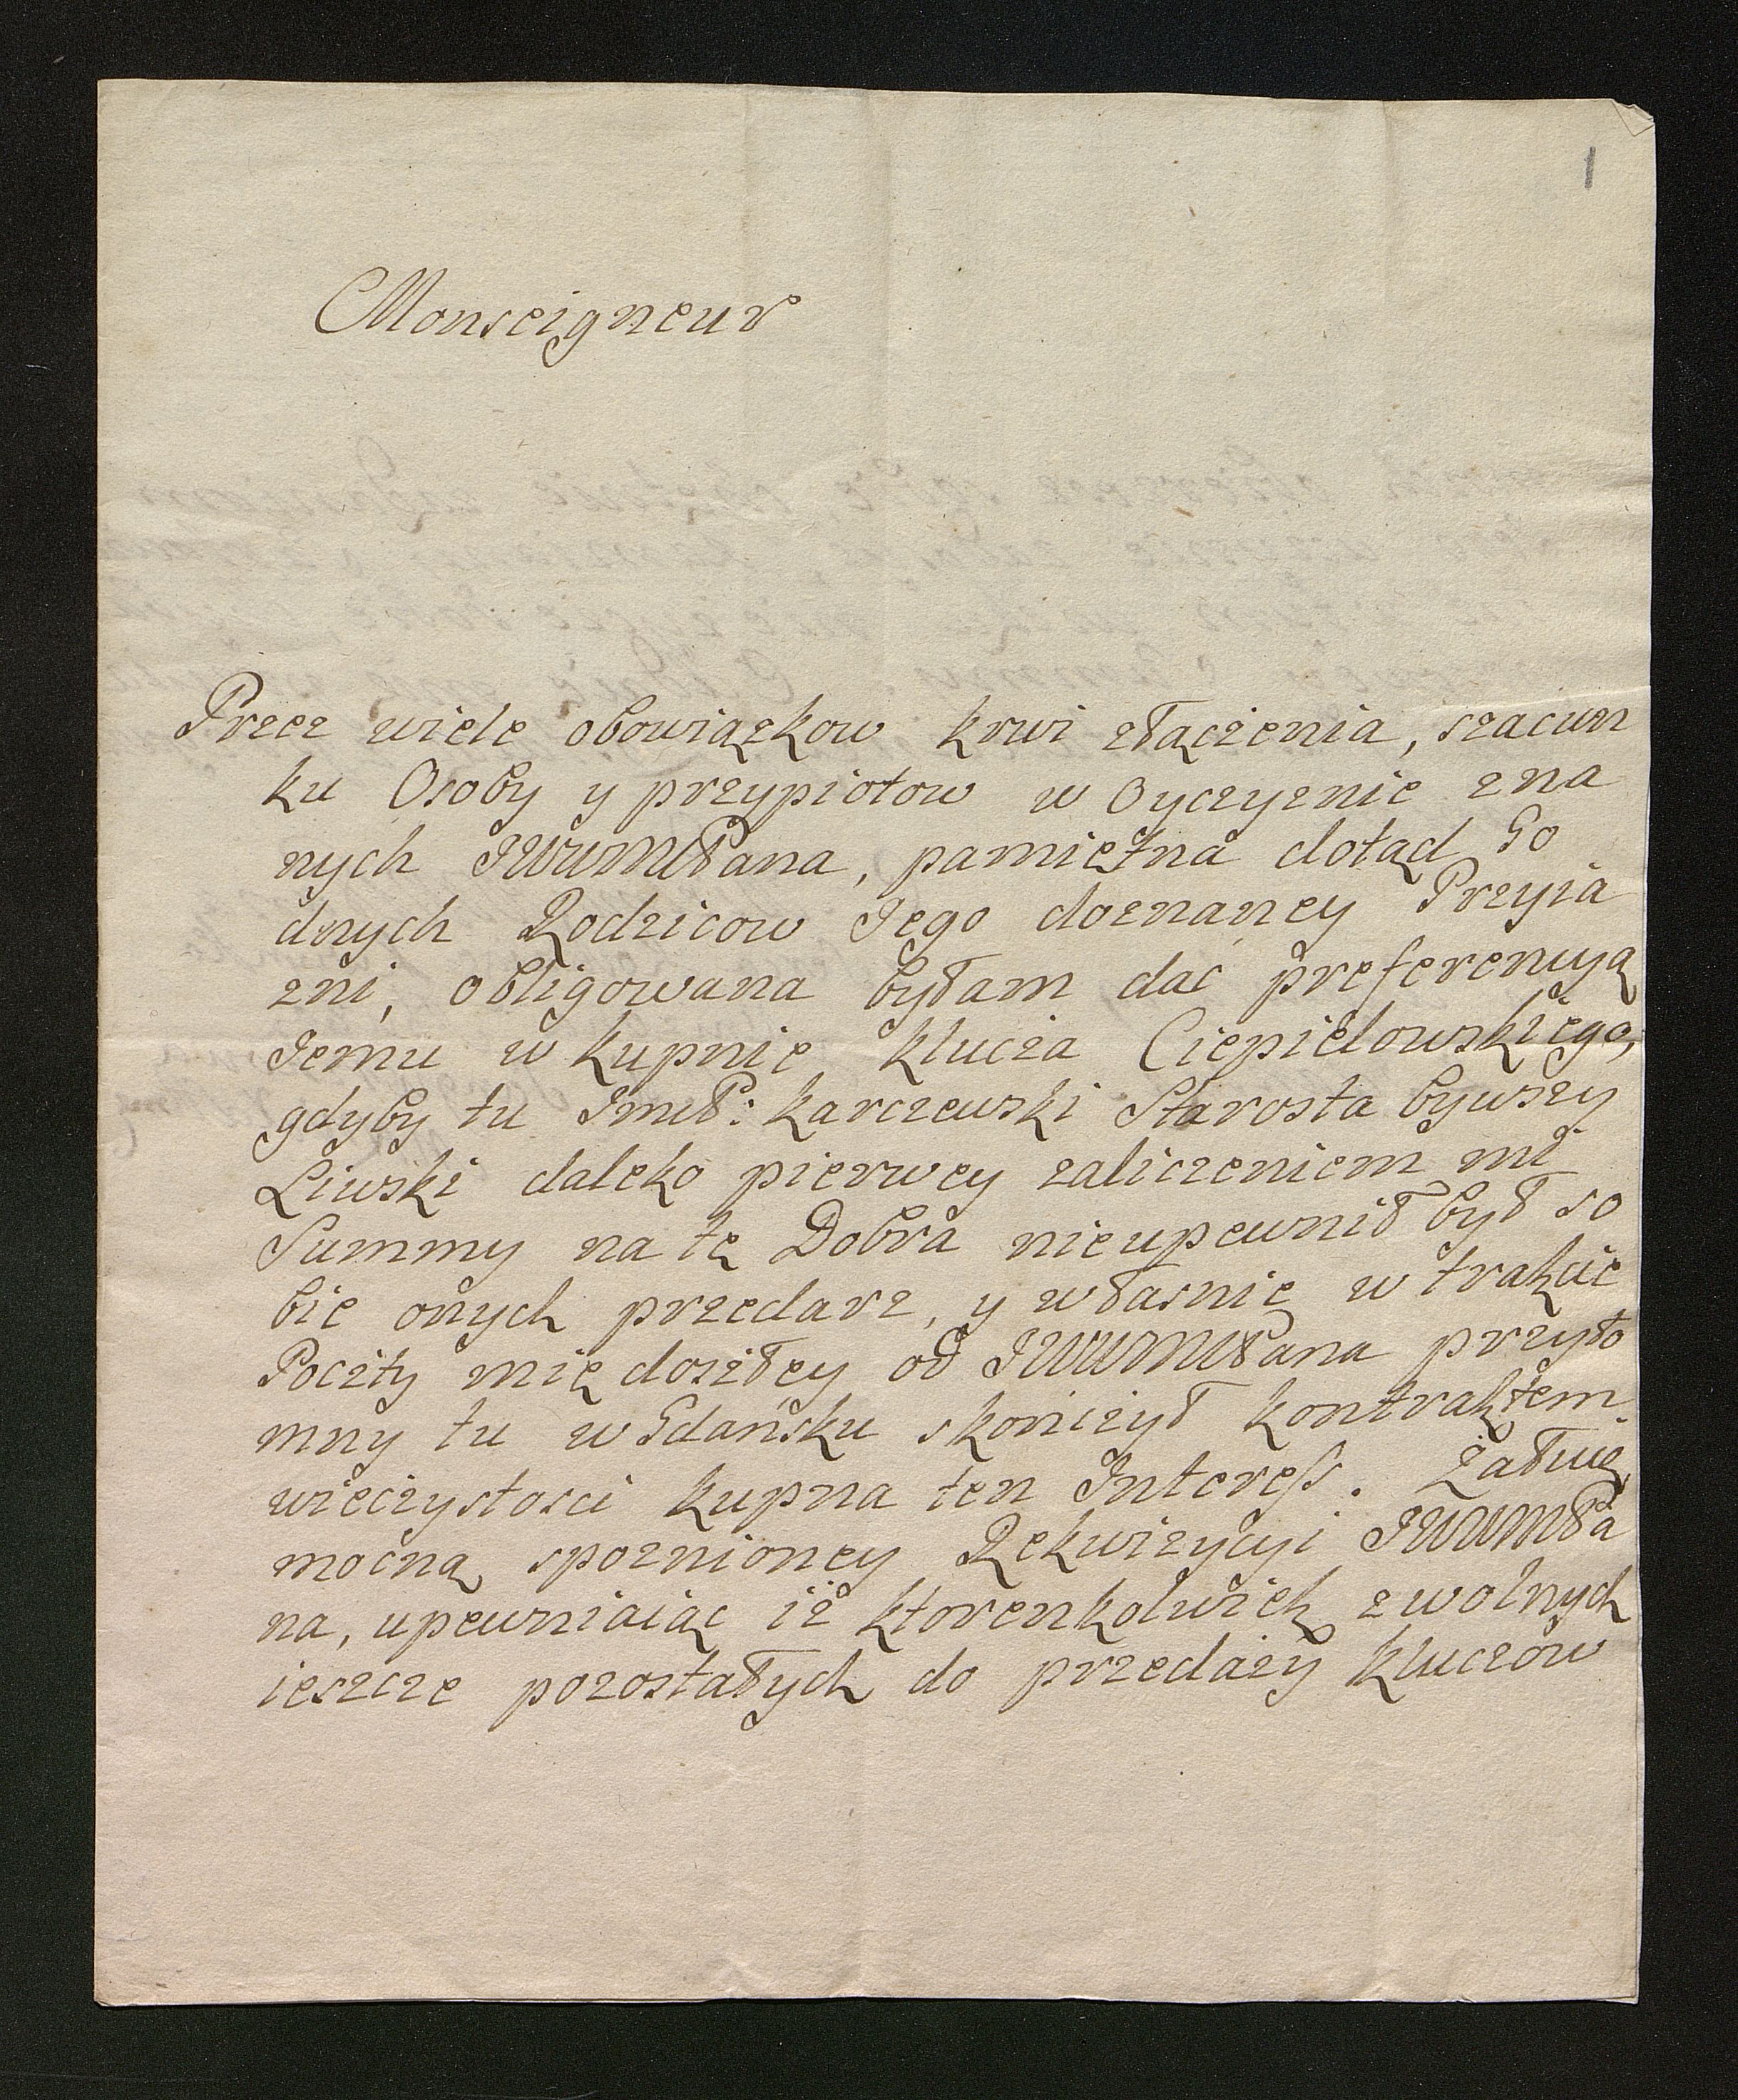 1
Monseigneur
Przez wiele obowiązkow krwi złączenia, szacun
ku Osoby y przypiotow w Oyczyznie zna
nych JWWMPana, pamiętna dotąd Go
dnych Rodzicow Jego doznaney Przyia
zni, obligowana byłam dac preferencyą
Jemu w kupnie klucza Ciepielowskiego,
gdyby tu JmP: Karczewski Starosta bywszy
Liwski daleko pierwey zaliczeniem mi
Summy na te Dobra nieupewnił był so
bie onych przedarz, y własnie w trakcie
Poczty mię doszłey od JWWMPana przyto
mny tu w Gdańsku skończył kontraktem
wieczystosci kupna ten Interess. Załuię
mocno spoznioney Rekwizycyi JWWMPa
na, upewniaiąc iż ktorenkolwiek z wolnych
ieszcze pozostałych do przedaży kluczów